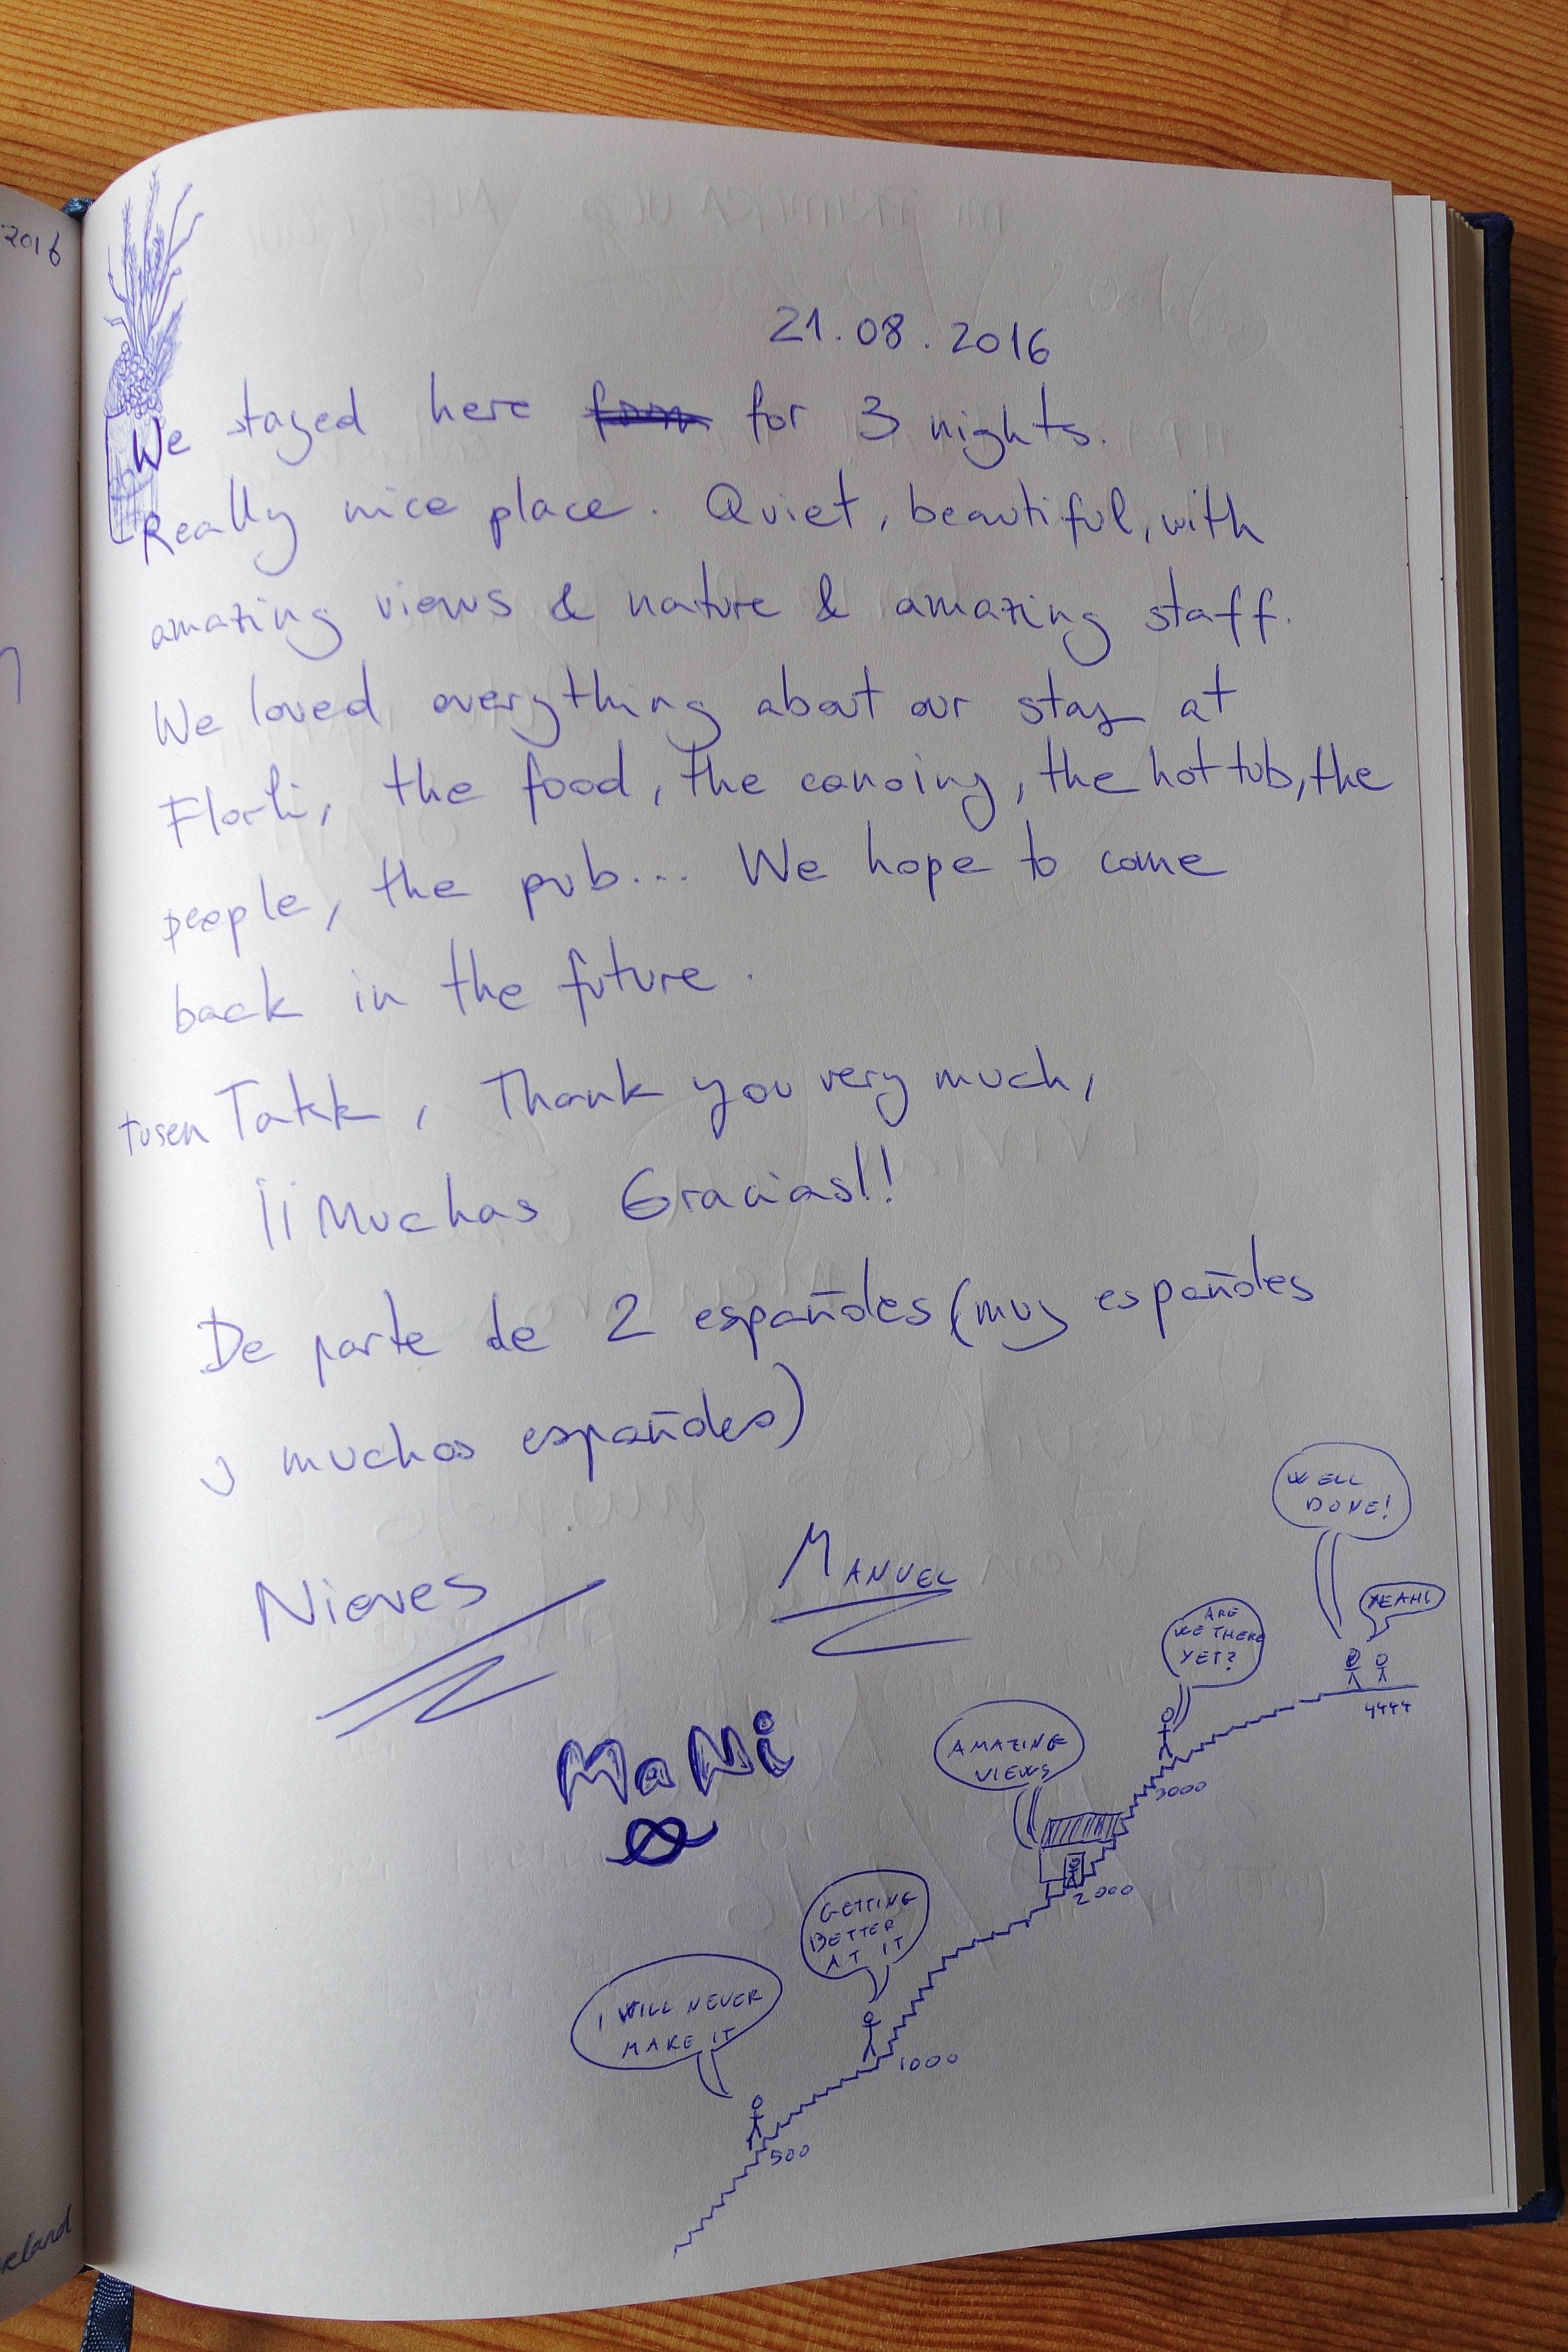 2016
21.08.2016
We stayed here for 3 nights.
Really nice place. Quiet, beautiful, with
amazing views & nature & amazing staff.
We loved everything about our stay at
Florli, the food, the canoing, the hot tub, the
people, the pub... We hope to come
back in the future.
tusen Takk, Thank you very much,
¡¡Muchas Gracias!!
De parte de 2 españoles (muy españoles
y muchos españoles)
Nieves MANUEL
MaNi
WELL
DONE!
YEAH!
4444
ARE
WE THERE
YET?
3000
AMAZING
VIEWS
2000
GETTING
BETTER
AT IT
1000
I WILL NEVER
MAKE IT
500